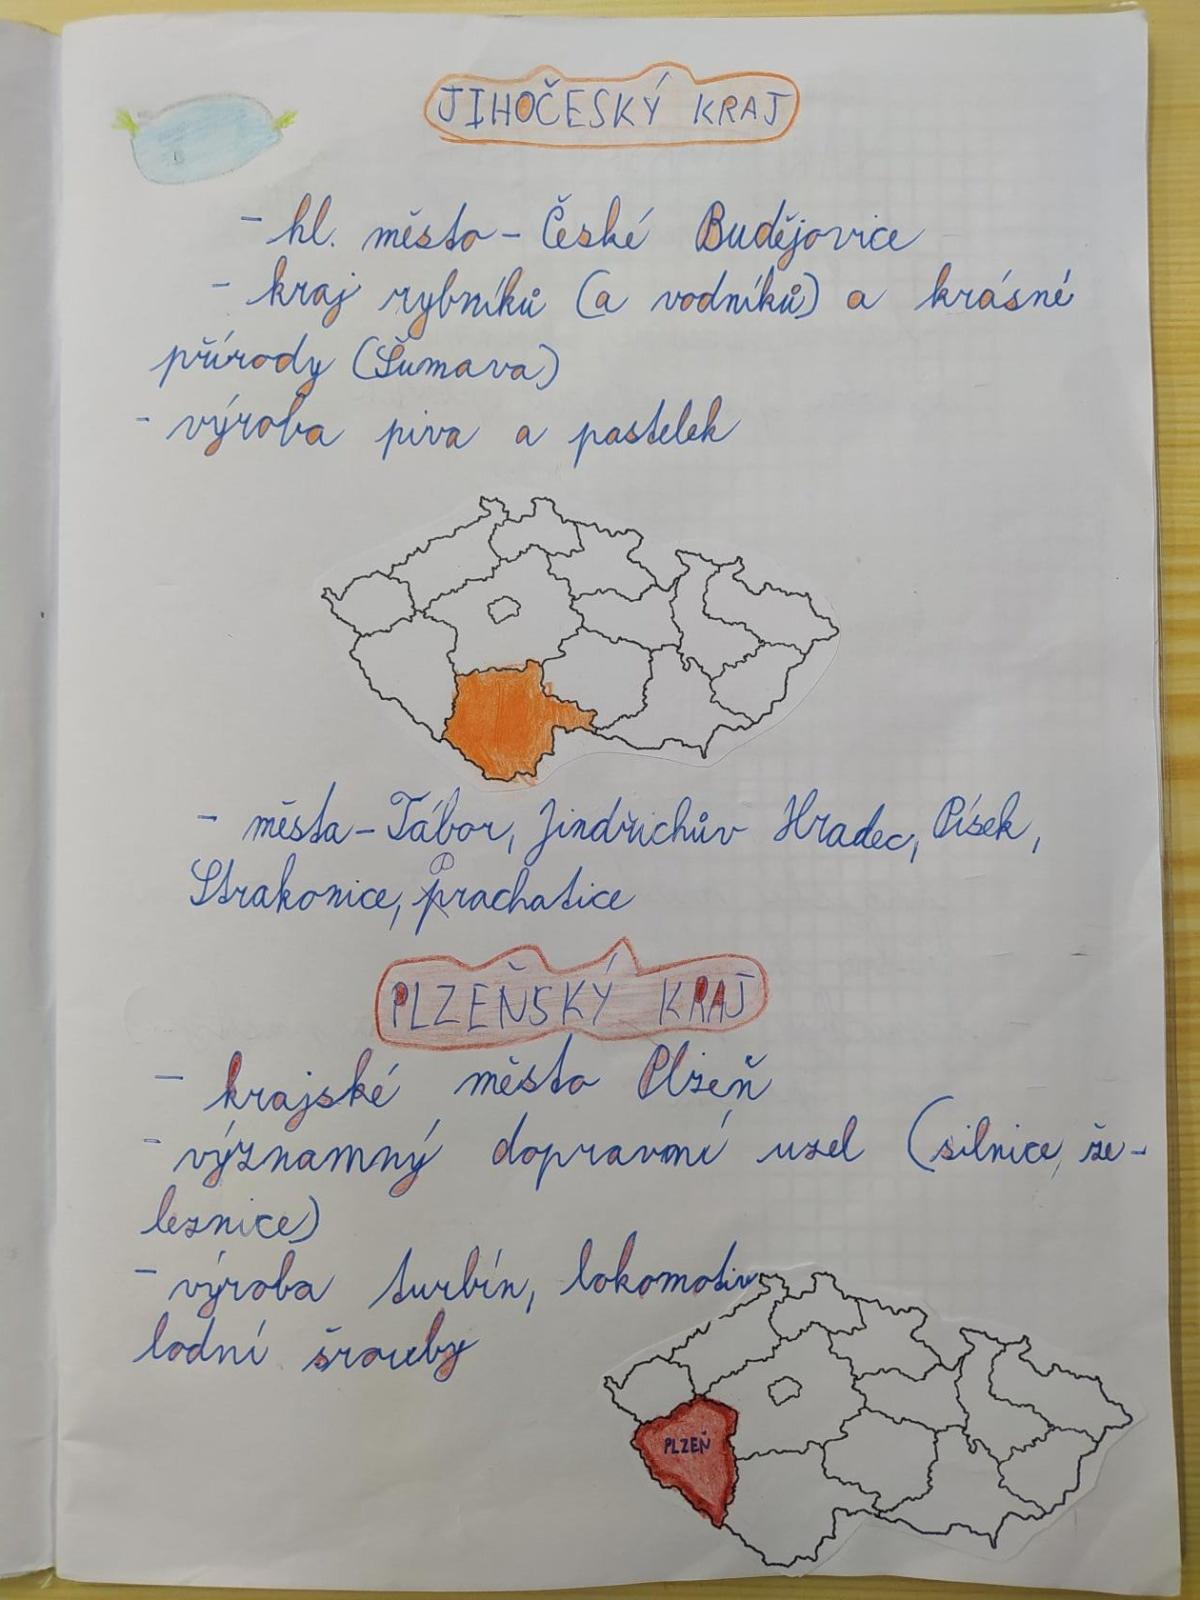 JIHOČESKÝ KRAJ
- hl. město - České Budějovice
- kraj rybníků (a vodníků) a krásné
přírody (Šumava)
- výroba piva a pastelek
- města - Tábor, Jindřichův Hradec, Písek,
Strakonice, Prachatice
PLZEŇSKÝ KRAJ
- krajské město Plzeň
- významný dopravní uzel (silnice, že-
leznice)
- výroba turbín, lokomotiv
lodní šrouby
PLZEŇ